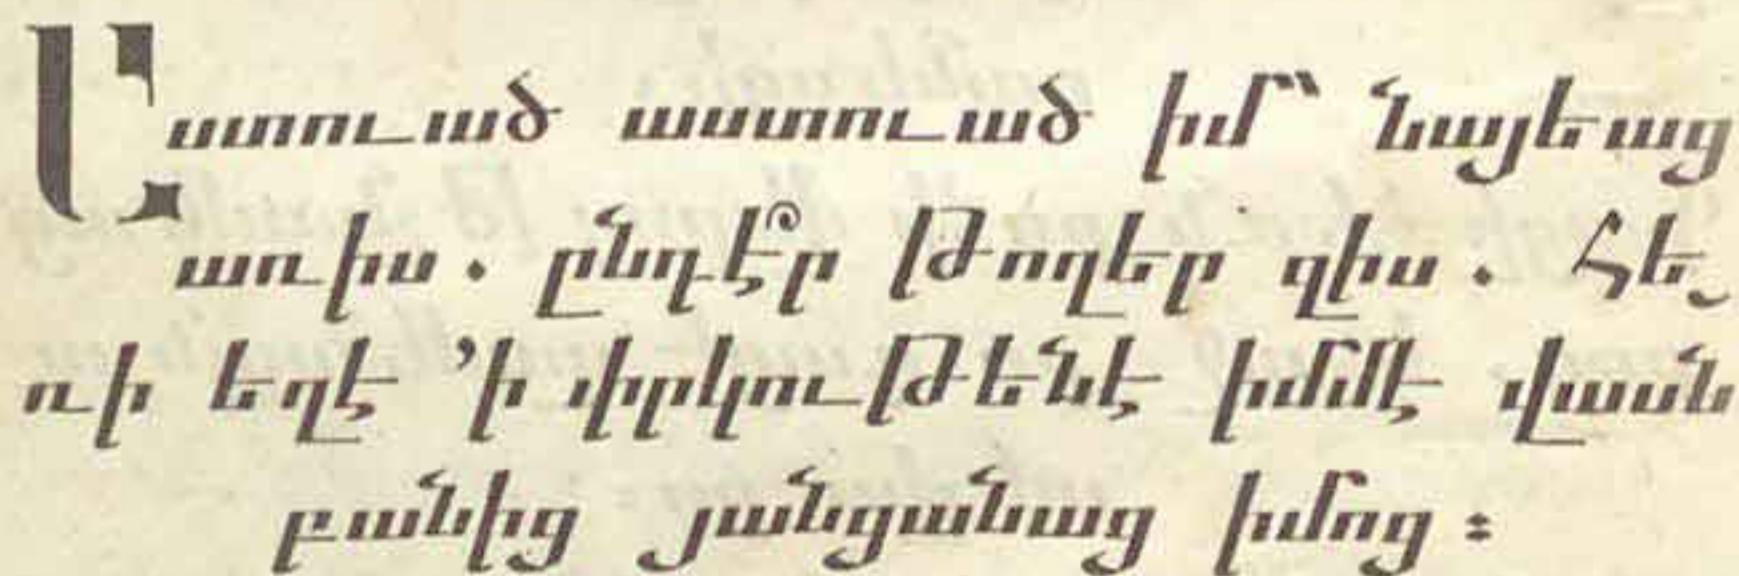 Աստուած աստուած իմ՝ նայեաց
առիս. ընդէ՞ր թողեր զիս. Հե֊
ռի եղէ ՚ի փրկութենէ իմմէ վասն
բանից յանցանաց իմոց։